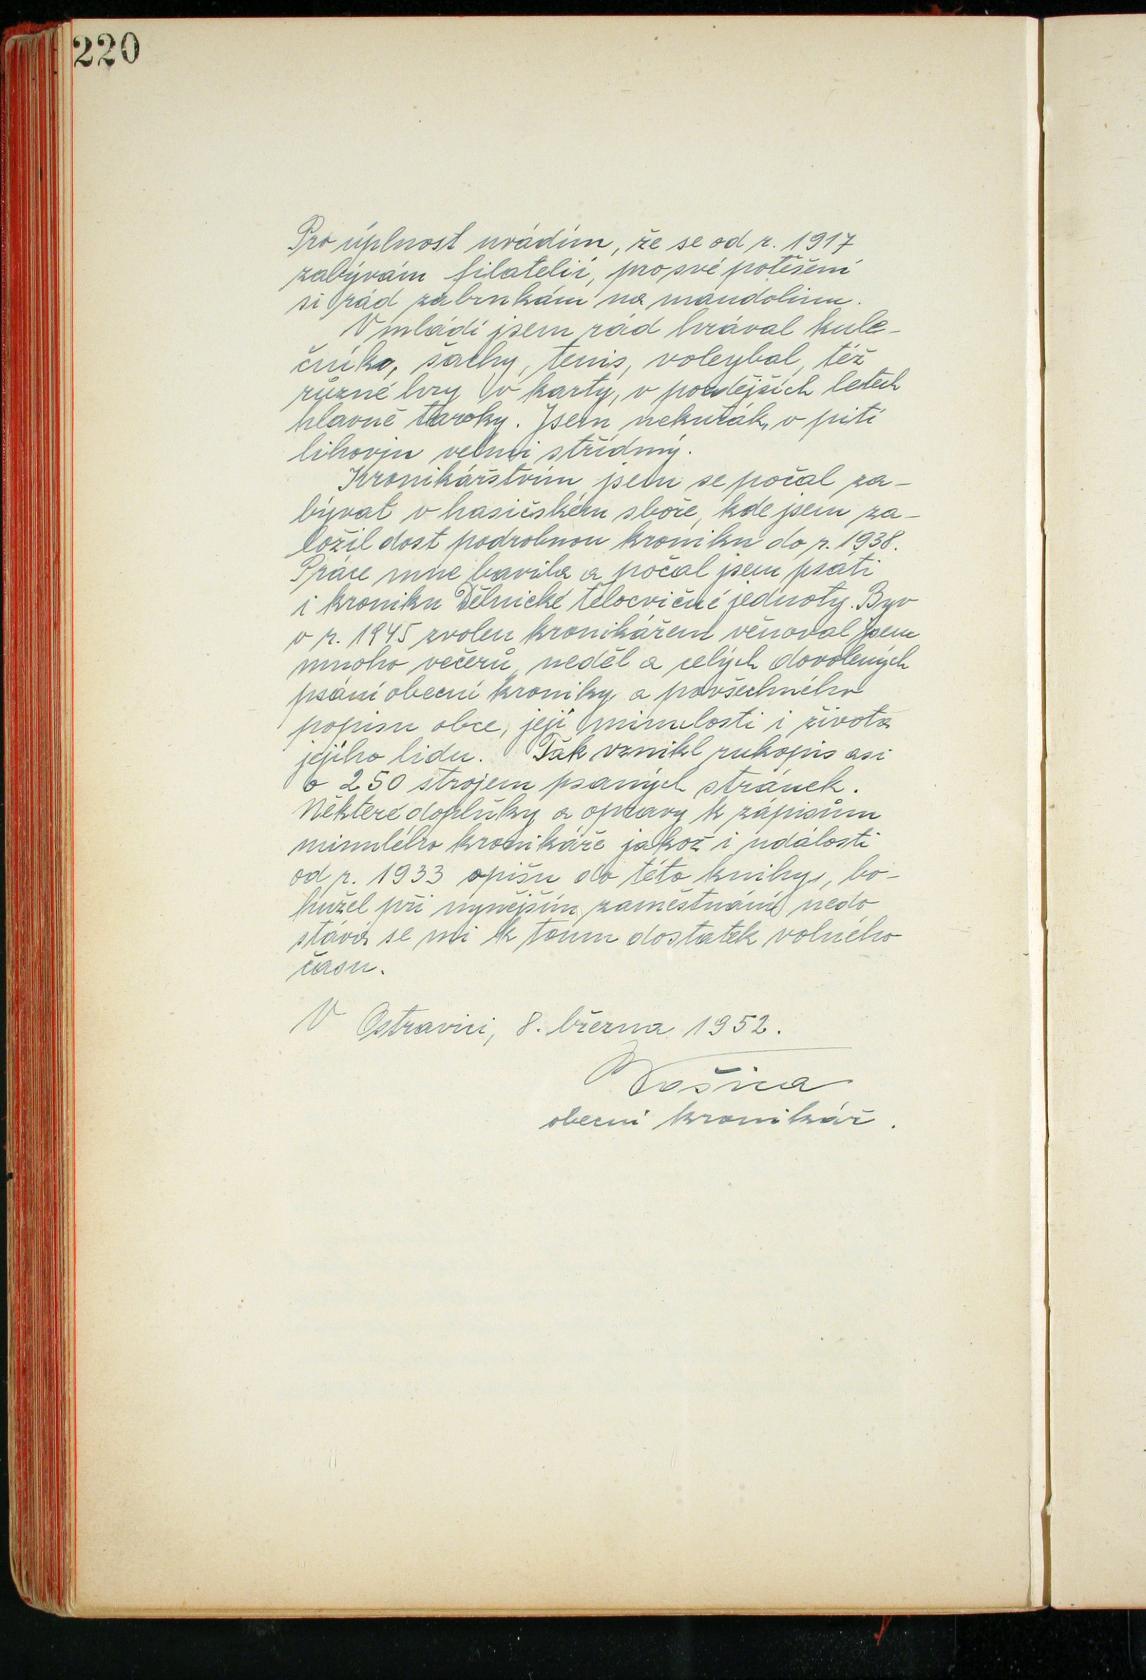 220
Pro úplnost uvádím, že se od r. 1917
zabývám filatelií, pro své potěšení
si rád zabrnkám na mandolinu.
V mládí jsem rád hrával kule-
čník, šachy, tenis, voleybal, též
různé hry v karty, v pozdějších letech
hlavně taroky. Jsem nekuřák, v pití
lihovin velmi střídmý.
Kronikářstvím jsem se počal za-
bývat v hasičském sboře, kde jsem za-
ložil dost podrobnou kroniku do r. 1938.
Práce mne bavila a počal jsem psáti
i kroniku Dělnické tělocvičné jednoty. Byv
v r. 1945 zvolen kronikářem věnoval jsem
mnoho večerů, neděl a celých dovolených
psání obecní kroniky a povšechného
popisu obce, její minulosti i života
jejího lidu. Tak vznikl rukopis asi
o 250 strojem psaných stránek.
Některé doplňky a opravy k zápisům
minulého kronikáře jakož i události
od r. 1933 opíšu do této knihy, bo-
hužel při nynějším zaměstnání nedo
stává se mi k tomu dostatek volného
času.
V Ostravici, 8. března 1952.
obecní kronikář.